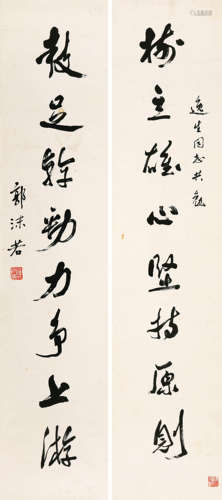 逸生同志共勉
树立雄心坚持原则
鼓足干劲力争上游
郭沫若